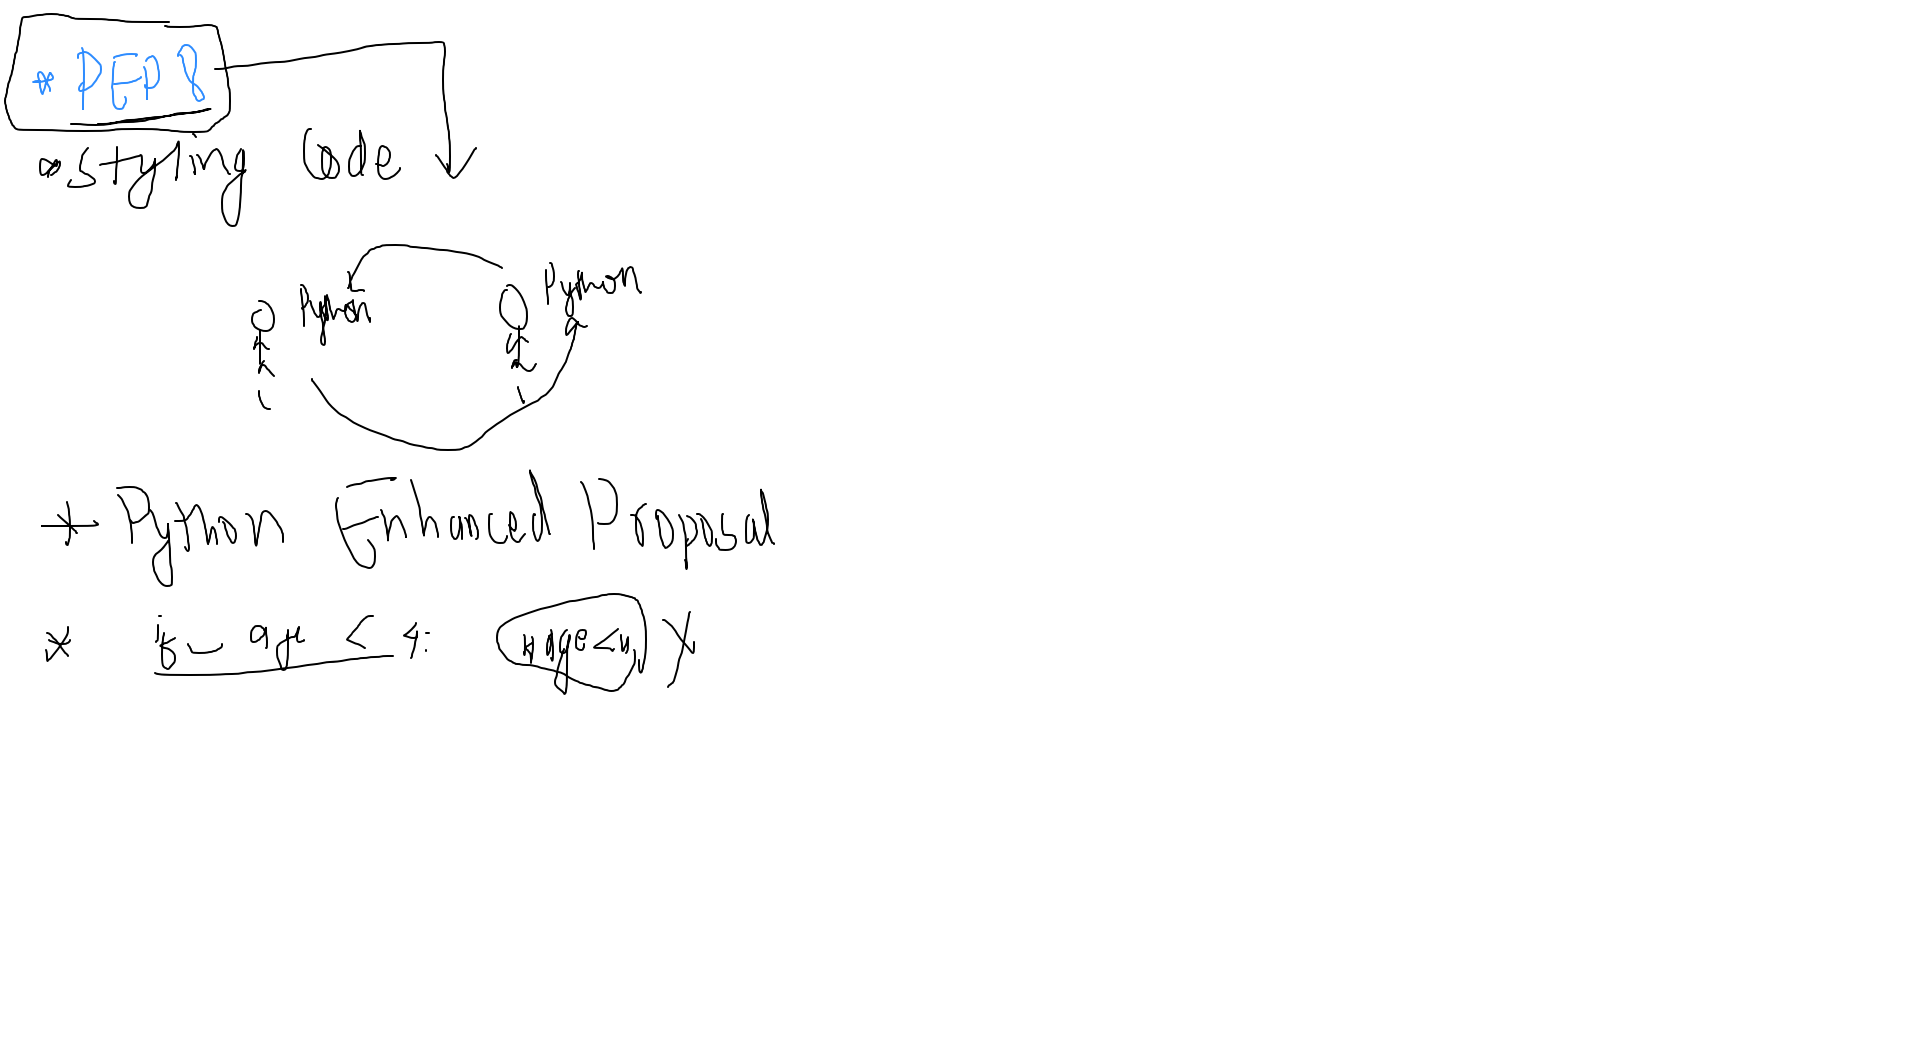 * PEP 8
* Styling Code
Python Python
* Python Enhanced Proposal
* if age < 4: age<4 X